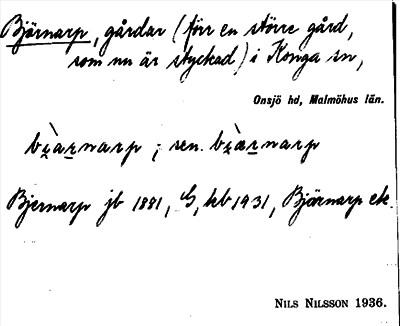 Bjärnarp, gårdar (förr en större gård,
som nu är styckad) i Konga sn,
Onsjö hd, Malmöhus län.
bi̯àr̲narp ; sen. bi̯æ̀r̲narp
Bjernarp jb 1881, G, kb 1931, Bjärnarp ek.
NILS NILSSON 1936.